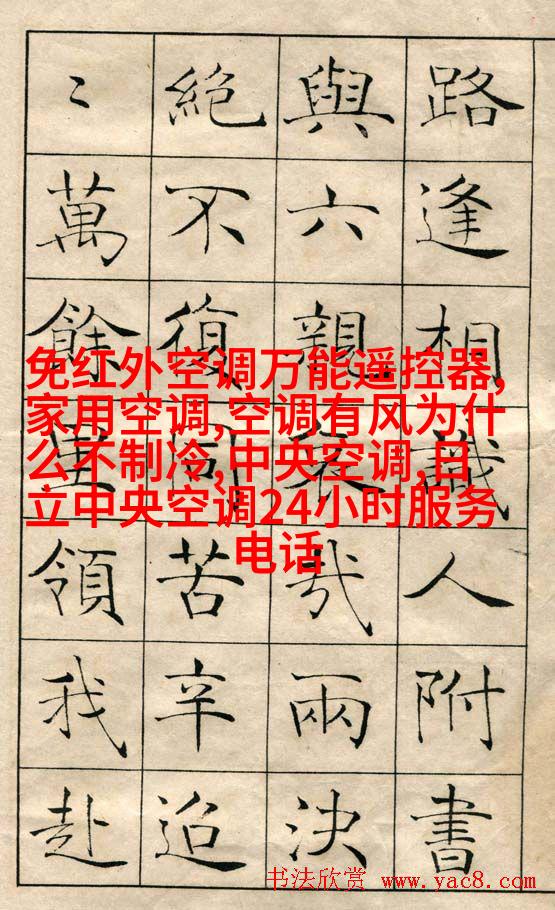 路逢相識人附書
與六親哀哉兩決
絕不復同苦辛迢
〻萬餘里領我赴
免红外空调万能遥控器,
家用空调,空调有风为什
么不制冷,中央空调,日
立中央空调24小时服务
电话
书法欣赏 www.yac8.com